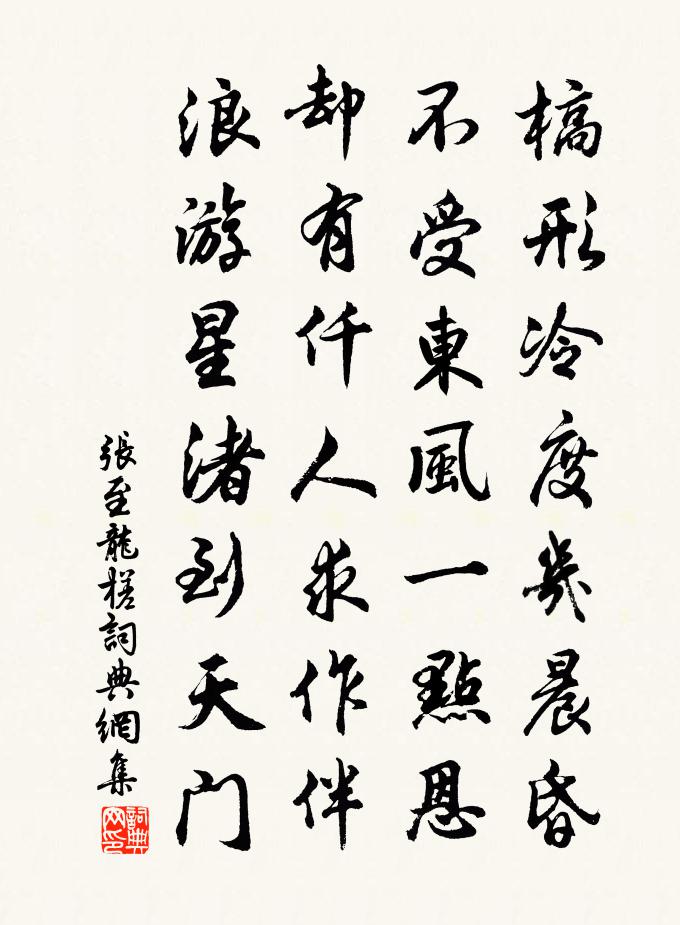 槁形冷度幾晨昏
不受東風一點恩
却有仟人求作伴
浪游星渚到天门
張至龍槎詞典網集
詞典网印